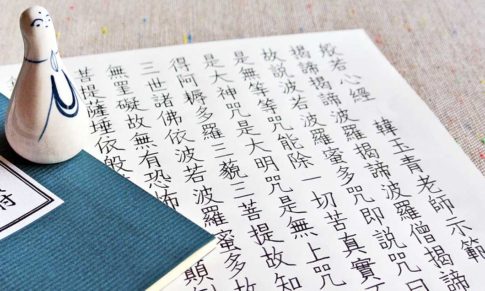 般若心經 韓玉青老師示範
揭諦揭諦波羅揭諦波羅僧揭諦
故說波若波羅蜜多咒即說咒曰
是無等等咒能除一切苦真實
是大神咒是大明咒是無上咒
得阿耨多羅三藐三菩提故知
三世諸佛依波若波羅蜜多故
無罣礙故無有恐怖
顛
菩提薩埵依般